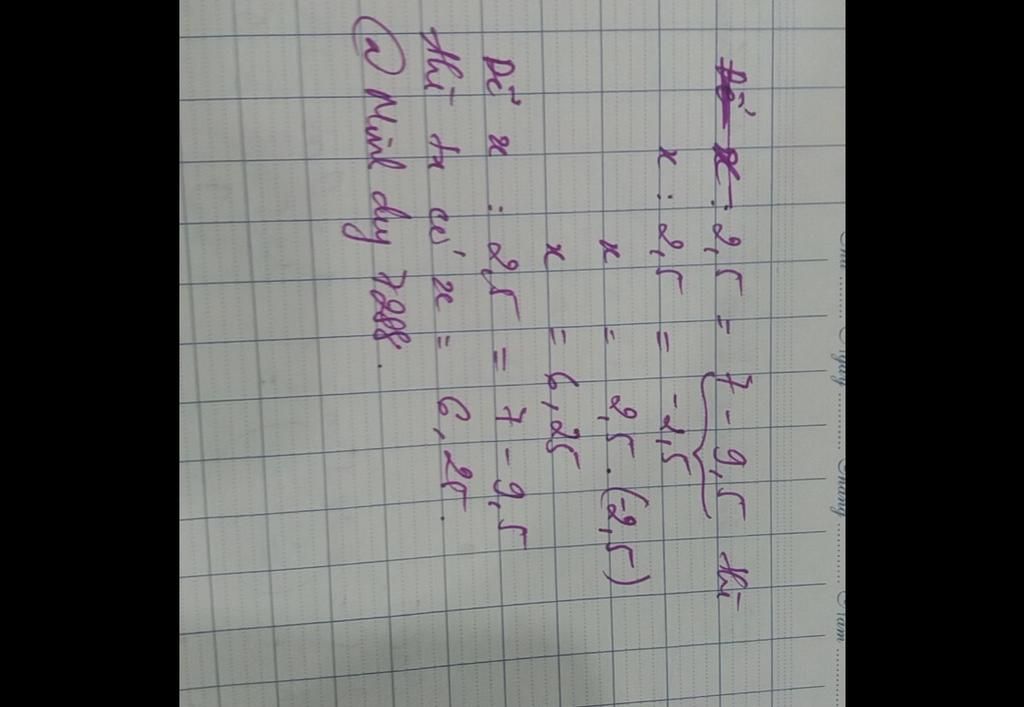 Thứ ........ Ngày ........ Tháng ........ Năm ........
Để x : 2,5 = 7 - 9,5 thì
x : 2,5 = -2,5
x = 2,5 . (-2,5)
x = 6,25
Để x : 2,5 = 7 - 9,5
thì ta có x = 6,25.
@ Minh duy 7288.